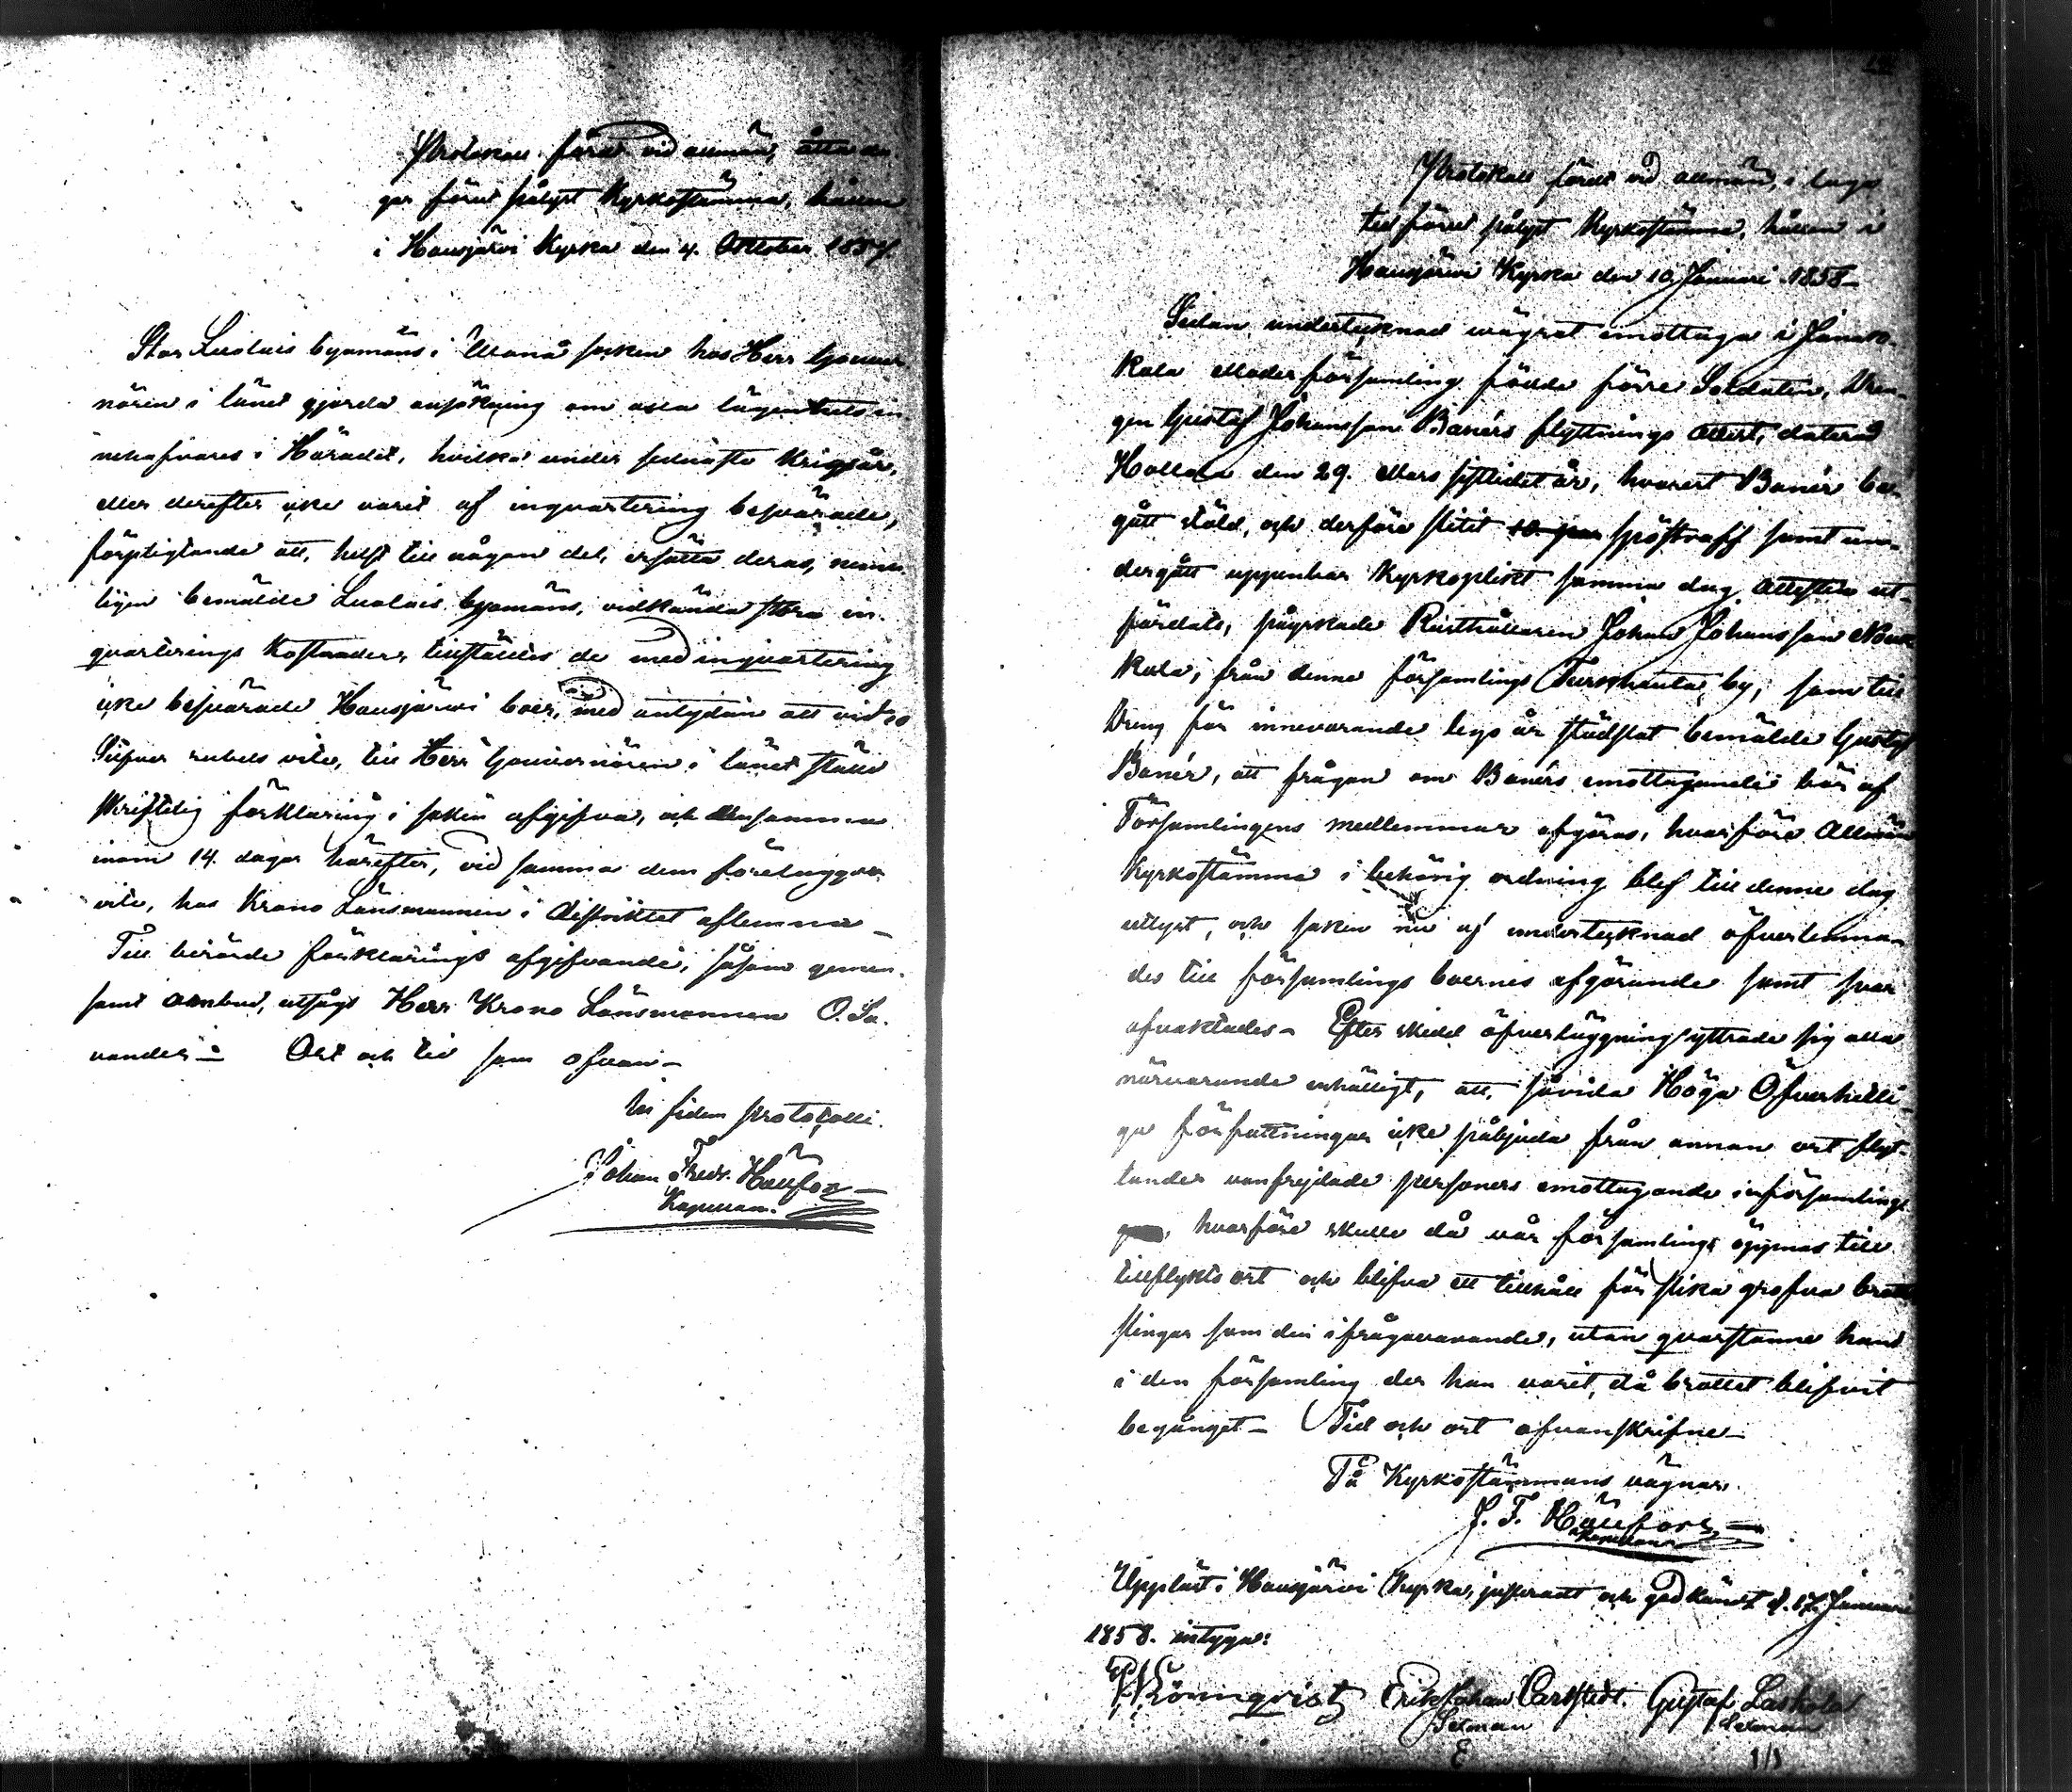 Protokoll fördt vid allmän, åtta da-
gar förut pålyst Kyrkostämma, hållen
i Hausjärvi Kyrka den 4. October 1857.
Stor Luolais byamäns i Wånå socken hos Herr Gouver-
nören i länet gjorda ansökning om alla lägenhetsin-
nehafvares i Häradet, hvilka under sednaste krigsår,
eller derefter icke varit af inqvartering besvärade,
förpligtande att, helst till någon del, ersätta deras, nemli-
ligen bemälde Luolais byamäns, vidkända stora in-
qvarterings kostnader, tillställdes de med inqvartering
icke besvärade Hausjärvi boer, med antydan att vid 10
Silfver rubels vite, till Herr Gouvernören i länet ställd
skriftelig förklaring i saken afgifva, och densamma
inom 14. dagar härefter, vid samma dem föreläggde
vite, hos Krono Länsmannen i districtet aflemna_
Till berörde förklarings afgifvande, såsom gemen-
samt ombud, utsågs Herr Krono Länsmannen O. Sa-
vander_ Ort och tid som ofvan_
In fidem protocolli.
Johan Fredr. Hällfors
Kapellan.
Protokoll fördt vid allmän, i laga
tid förut pålyst Kyrkostämma, hållen i
Hausjärvi Kyrka den 10 Januari 1858_
Sedan undertecknad vägrat emottaga i Janak-
kala Moderförsamling födde förre Soldaten, Dren-
gen Gustaf Johansson Banérs flyttnings attest, daterad
Hollola den 29. Mars sistledit år, hvarest Banér be-
gått stöld, och derföre slitit 10 par spöstraff samt un-
dergått uppenbar Kyrkoplikt samma dag attesten ut-
färdats, påyrkade Rusthållaren Johan Johansson Nouk-
kala, från denne församlings Turkhauta by, som till
Dreng för innevarande lego år städslat bemälde Gustaf
Banér, att frågan om Banérs emottagande bör af
Församlingens medlemmar afgöras, hvarföre Allmän
Kyrkostämma i behörig ordning blef till denne dag
utlyst, och saken nu af undertecknad öfverlemna-
des till församlings boernes afgörande samt svar
afvaktades_ Efter skedd öfverläggning yttrade sig alla
närvarande enhälligt, att, såvida Höga Öfverhetli-
ga författningar icke påbjuda från annan ort flyt-
tander vanfrejdade personers emottagande i församling
hvarföre skulle då vår församling öppnas till
tillflykts ort och blifva ett tillhåll för slika grofva brott-
slingar som den ifrågavarande, utan qvarstanne han
i den församling der han varit, då brottet blifvit
begånget_ Tid och ort ofvanskrifne_
På Kyrkostämmans vägnar.
J. F. Hällfors
Kapellan
Uppläst i Hausjärvi Kyrka, justeradt och godkändt d. 17. Januari
1858. intyga:
Rönnqvist Erik Johan Carlstedt. Gustaf Laskola
Sexman Sexman